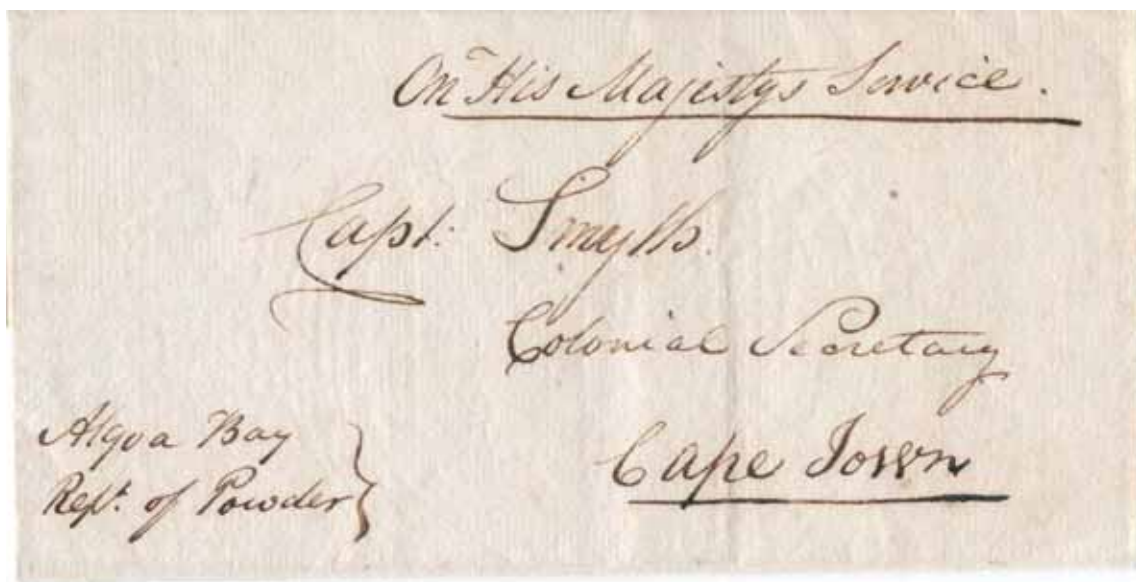 On His Majestys Service.
Capt: Smyth.
Colonial Secretary
Cape Town
Algoa Bay
Rept. of Powder